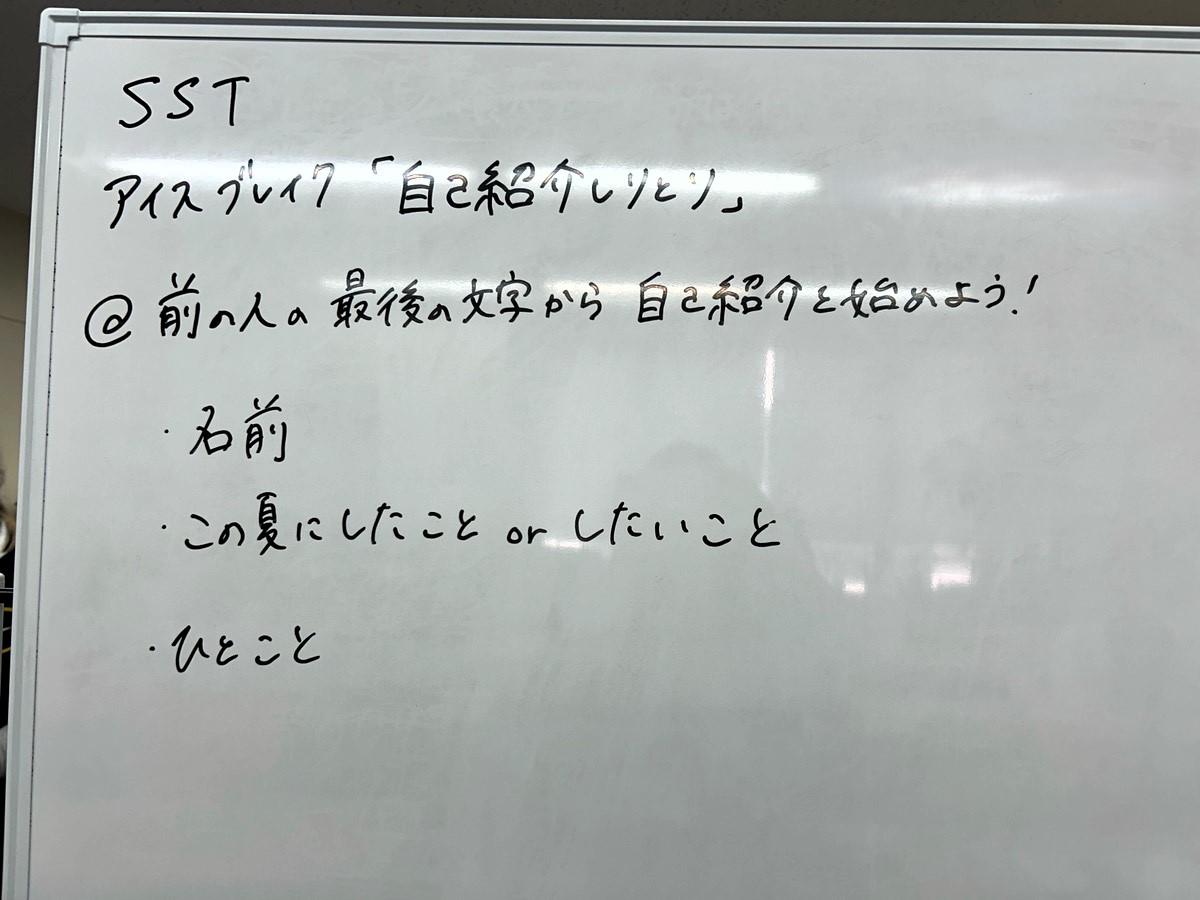 SST
アイスブレイク「自己紹介しりとり」
@ 前の人の最後の文字から 自己紹介を始めよう!
・名前
・この夏にしたこと or したいこと
・ひとこと